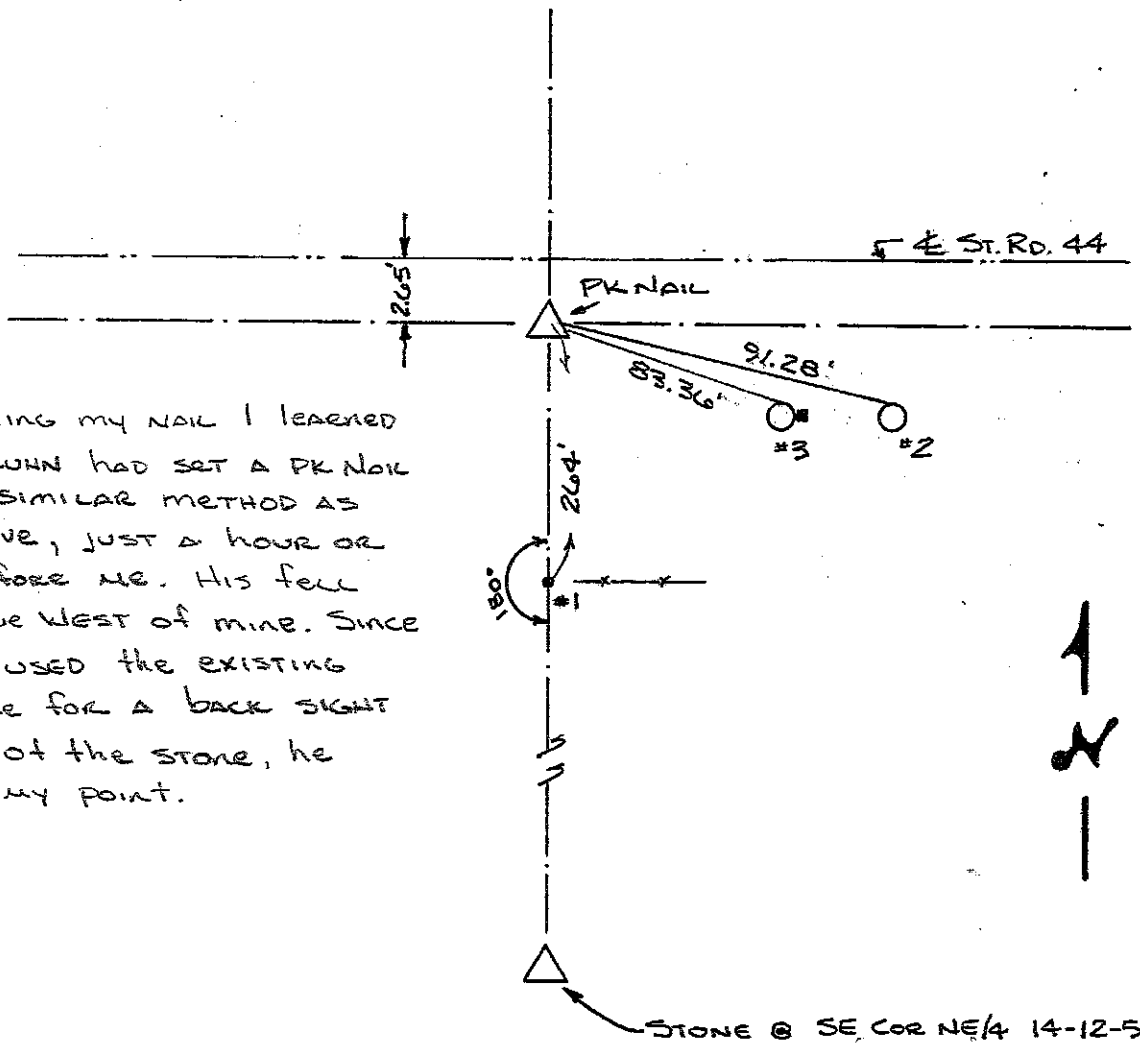 ℄ ST. RD. 44
2.65'
PK NAIL
91.28'
83.36'
#3
#2
ING MY NAIL I LEARNED
UNN HAD SET A PK NAIL
SIMILAR METHOD AS
VE, JUST A HOUR OR
FORE ME. HIS FELL
UE WEST OF MINE. SINCE
USED THE EXISTING
E FOR A BACK SIGHT
OF THE STONE, HE
MY POINT.
264'
180°
#1
N
STONE @ SE COR NE/4 14-12-5